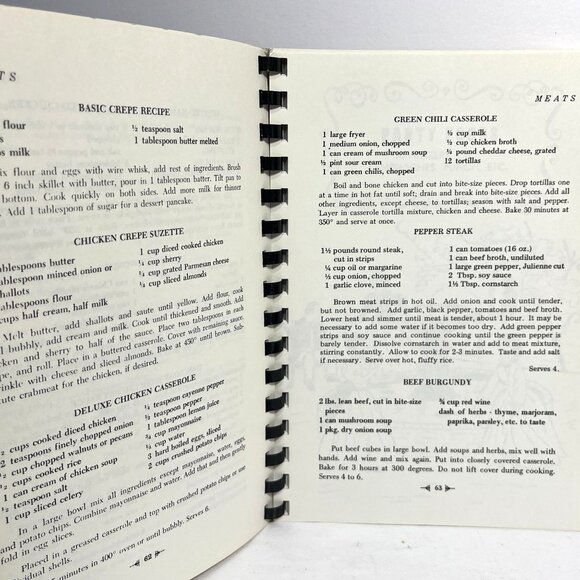 TS
BASIC CREPE RECIPE
flour
½ teaspoon salt
1 tablespoon butter melted
s milk
ix flour and eggs with wire whisk, add rest of ingredients. Brush
6 inch skillet with butter, pour in 1 tablespoon batter. Tilt pan to
bottom. Cook quickly on both sides. Add more milk for thinner
Add 1 tablespoon of sugar for a dessert pancake.
CHICKEN CREPE SUZETTE
tablespoons butter
tablespoon minced onion or
shallots
tablespoons flour
cups half cream, half milk
1 cup diced cooked chicken
¼ cup sherry
¼ cup grated Parmesan cheese
¼ cup sliced almonds
Melt butter, add shallots and saute until yellow. Add flour, cook
l bubbly, add cream and milk. Cook until thickened and smooth. Add
cken and sherry to half of the sauce. Place two tablespoons in each
pe, and roll. Place in a buttered casserole. Cover with remaining sauce.
inkle with cheese and sliced almonds. Bake at 450° until brown. Sub-
ute crabmeat for the chicken, if desired.
DELUXE CHICKEN CASSEROLE
cups cooked diced chicken
teaspoons finely chopped onion
cup chopped walnuts or pecans
cups cooked rice
1 can cream of chicken soup
teaspoon salt
1 cup sliced celery
¼ teaspoon cayenne pepper
teaspoon pepper
1 tablespoon lemon juice
cup mayonnaise
cup water
3 hard boiled eggs, sliced
2 cups crushed potato chips
In a large bowl mix all ingredients except mayonnaise, water, eggs,
and potato chips. Combine mayonnaise and water. Add that and then gently
fold in egg slices.
Placed in a greased casserole and top with crushed potato chips or use
vidual shells.
minutes in 400° oven or until bubbly. Serves 6.
62
MEATS
GREEN CHILI CASSEROLE
1 large fryer
1 medium onion, chopped
1 can cream of mushroom soup
½ pint sour cream
1 can green chilis, chopped
cup milk
cup chicken broth
pound cheddar cheese, grated
12 tortillas
Boil and bone chicken and cut into bite-size pieces. Drop tortillas one
at a time in hot fat until soft; drain and break into bite-size pieces. Add all
other ingredients, except cheese, to tortillas; season with salt and pepper.
Layer in casserole tortilla mixture, chicken and cheese. Bake 30 minutes at
350° and serve at once.
PEPPER STEAK
1½ pounds round steak,
cut in strips
¼ cup oil or margarine
½ cup onion, chopped
1 garlic clove, minced
1 can tomatoes (16 oz.)
1 can beef broth, undiluted
1 large green pepper, Julienne cut
2 Tbsp. soy sauce
1½ Tbsp. cornstarch
Brown meat strips in hot oil. Add onion and cook until tender,
but not browned. Add garlic, black pepper, tomatoes and beef broth.
Lower heat and simmer until meat is tender, about 1 hour. It may be
necessary to add some water if it becomes too dry. Add green pepper
strips and soy sauce and continue cooking until the green pepper is
barely tender. Dissolve cornstarch in water and add to meat mixture,
stirring constantly. Allow to cook for 2-3 minutes. Taste and add salt
if necessary. Serve over hot, fluffy rice.
Serves 4.
BEEF BURGUNDY
2 lbs. lean beef, cut in bite-size
pieces
1 can mushroom soup
1 pkg. dry onion soup
¾ cup red wine
dash of herbs - thyme, marjoram,
paprika, parsley, etc. to taste
Put beef cubes in large bowl. Add soups and herbs, mix well with
hands. Add wine and mix again. Put into closely covered casserole.
Bake for 3 hours at 300 degrees. Do not lift cover during cooking.
Serves 4 to 6.
63